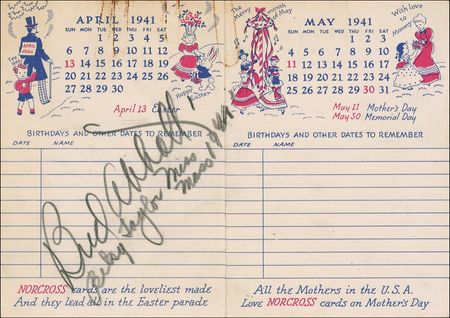 APRIL 1941
SUN MON TUE WED THU FRI SAT
1 2 3 4 5
6 7 8 9 10 11 12
13 14 15 16 17 18 19
20 21 22 23 24 25 26
27 28 29 30
APRIL FOOL
Happy Easter
April 13 Easter
BIRTHDAYS AND OTHER DATES TO REMEMBER
DATE NAME
Bud Abbott
Betsy Taylor Miss
Mass 1941
NORCROSS cards are the loveliest made
And they lead all in the Easter parade
The Merry month of May
MAY 1941
SUN MON TUE WED THU FRI SAT
1 2 3
4 5 6 7 8 9 10
11 12 13 14 15 16 17
18 19 20 21 22 23 24
25 26 27 28 29 30 31
With love to Mommy
May 11 Mother's Day
May 30 Memorial Day
BIRTHDAYS AND OTHER DATES TO REMEMBER
DATE NAME
All the Mothers in the U.S.A.
Love NORCROSS cards on Mother's Day